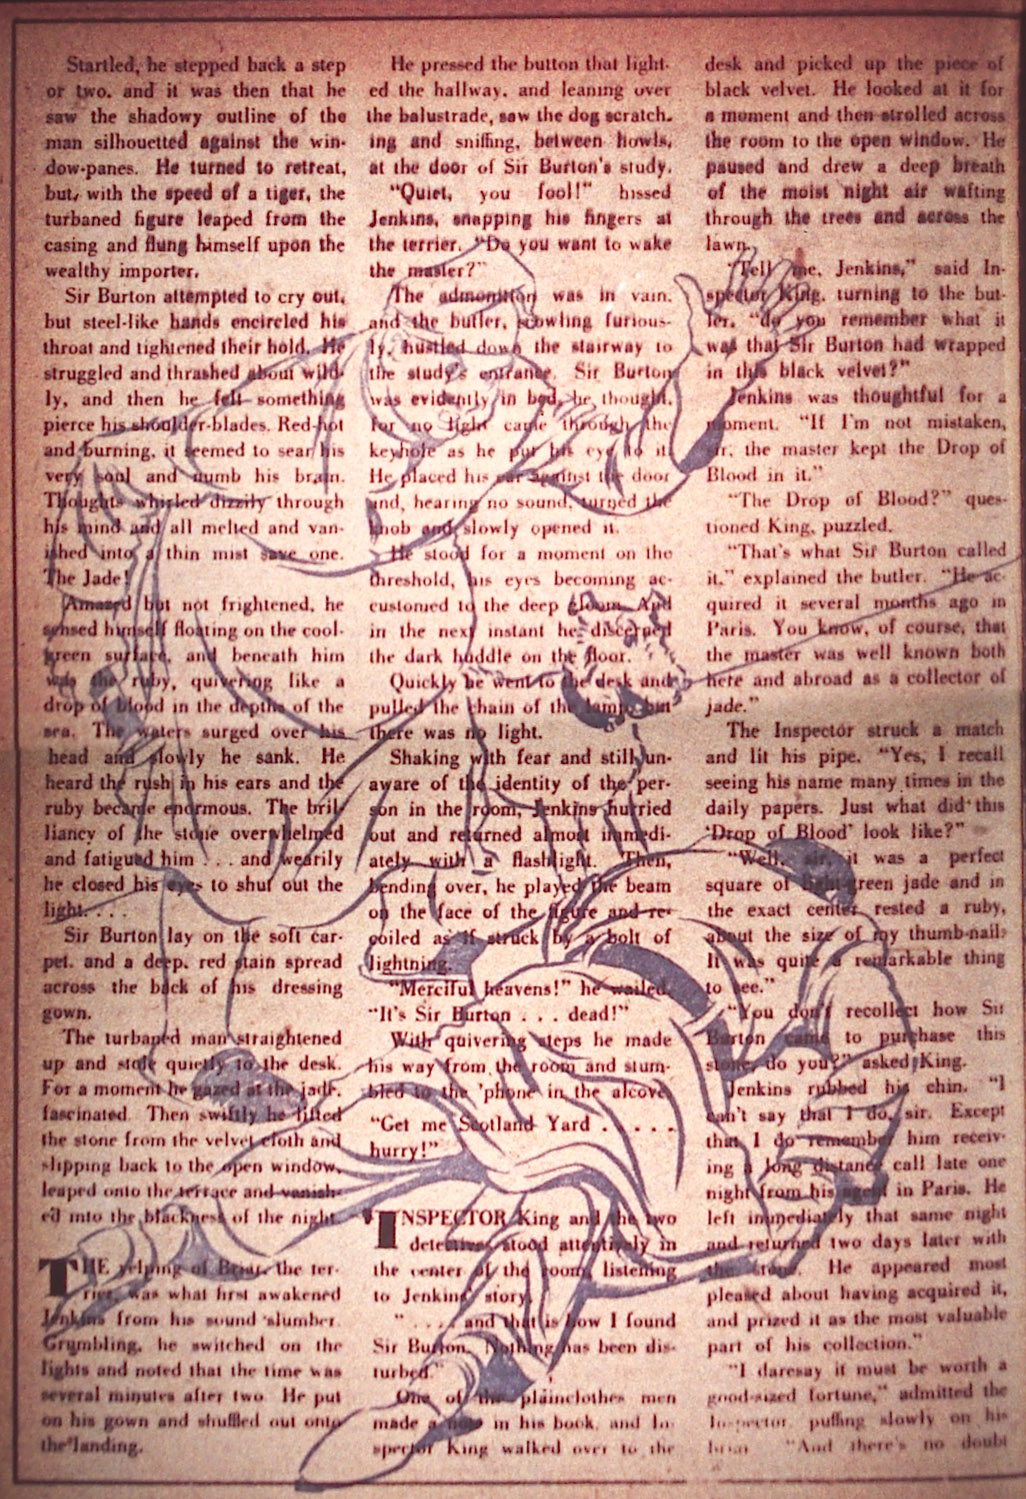 Startled, he stepped back a step
or two, and it was then that he
saw the shadowy outline of the
man silhouetted against the win-
dow-panes. He turned to retreat,
but, with the speed of a tiger, the
turbaned figure leaped from the
casing and flung himself upon the
wealthy importer.
Sir Burton attempted to cry out,
but steel-like hands encircled his
throat and tightened their hold. He
struggled and thrashed about wild-
ly, and then he felt something
pierce his shoulder-blades. Red-hot
and burning, it seemed to sear his
very soul and numb his brain.
Thoughts whirled dizzily through
his mind and all melted and van-
ished into a thin mist save one.
The Jade!
Amazed but not frightened, he
sensed himself floating on the cool-
green surface, and beneath him
was the ruby, quivering like a
drop of blood in the depths of the
sea. The waters surged over his
head and slowly he sank. He
heard the rush in his ears and the
ruby became enormous. The bril-
liancy of the stone overwhelmed
and fatigued him . . . and wearily
he closed his eyes to shut out the
light. . . .
Sir Burton lay on the soft car-
pet, and a deep, red stain spread
across the back of his dressing
gown.
The turbaned man straightened
up and stole quietly to the desk.
For a moment he gazed at the jade,
fascinated. Then swiftly he lifted
the stone from the velvet cloth and
slipping back to the open window,
leaped onto the terrace and vanish-
ed into the blackness of the night.
THE yelping of Briar, the ter-
rier, was what first awakened
Jenkins from his sound slumber.
Grumbling, he switched on the
lights and noted that the time was
several minutes after two. He put
on his gown and shuffled out onto
the landing.
He pressed the button that light-
ed the hallway, and leaning over
the balustrade, saw the dog scratch-
ing and sniffing, between howls,
at the door of Sir Burton's study.
"Quiet, you fool!" hissed
Jenkins, snapping his fingers at
the terrier. "Do you want to wake
the master?"
The admonition was in vain,
and the butler, scowling furious-
ly, hustled down the stairway to
the study's entrance. Sir Burton
was evidently in bed, he thought,
for no light came through the
keyhole as he put his eye to it.
He placed his ear against the door
and, hearing no sound, turned the
knob and slowly opened it.
He stood for a moment on the
threshold, his eyes becoming ac-
customed to the deep gloom. And
in the next instant he discerned
the dark huddle on the floor.
Quickly he went to the desk and
pulled the chain of the lamp, but
there was no light.
Shaking with fear and still un-
aware of the identity of the per-
son in the room, Jenkins hurried
out and returned almost immedi-
ately with a flashlight. Then,
bending over, he played the beam
on the face of the figure and re-
coiled as if struck by a bolt of
lightning.
"Merciful heavens!" he wailed.
"It's Sir Burton . . . dead!"
With quivering steps he made
his way from the room and stum-
bled to the 'phone in the alcove.
"Get me Scotland Yard . . . . .
hurry!"
INSPECTOR King and the two
detectives stood attentively in
the center of the room, listening
to Jenkins' story.
" . . . . and that is how I found
Sir Burton. Nothing has been dis-
turbed."
One of the plainclothes men
made a note in his book, and In-
spector King walked over to the
desk and picked up the piece of
black velvet. He looked at it for
a moment and then strolled across
the room to the open window. He
paused and drew a deep breath
of the moist night air wafting
through the trees and across the
lawn.
"Tell me, Jenkins," said In-
spector King, turning to the but-
ler, "do you remember what it
was that Sir Burton had wrapped
in this black velvet?"
Jenkins was thoughtful for a
moment. "If I'm not mistaken,
sir, the master kept the Drop of
Blood in it."
"The Drop of Blood?" ques-
tioned King, puzzled.
"That's what Sir Burton called
it," explained the butler. "He ac-
quired it several months ago in
Paris. You know, of course, that
the master was well known both
here and abroad as a collector of
jade."
The Inspector struck a match
and lit his pipe. "Yes, I recall
seeing his name many times in the
daily papers. Just what did this
'Drop of Blood' look like?"
"Well, sir, it was a perfect
square of light-green jade and in
the exact center rested a ruby,
about the size of my thumb-nail.
It was quite a remarkable thing
to see."
"You don't recollect how Sir
Burton came to purchase this
stone, do you?" asked King.
Jenkins rubbed his chin. "I
can't say that I do, sir. Except
that I do remember him receiv-
ing a long distance call late one
night from his agent in Paris. He
left immediately that same night
and returned two days later with
the stone. He appeared most
pleased about having acquired it,
and prized it as the most valuable
part of his collection."
"I daresay it must be worth a
good-sized fortune," admitted the
Inspector, puffing slowly on his
briar. "And there's no doubt